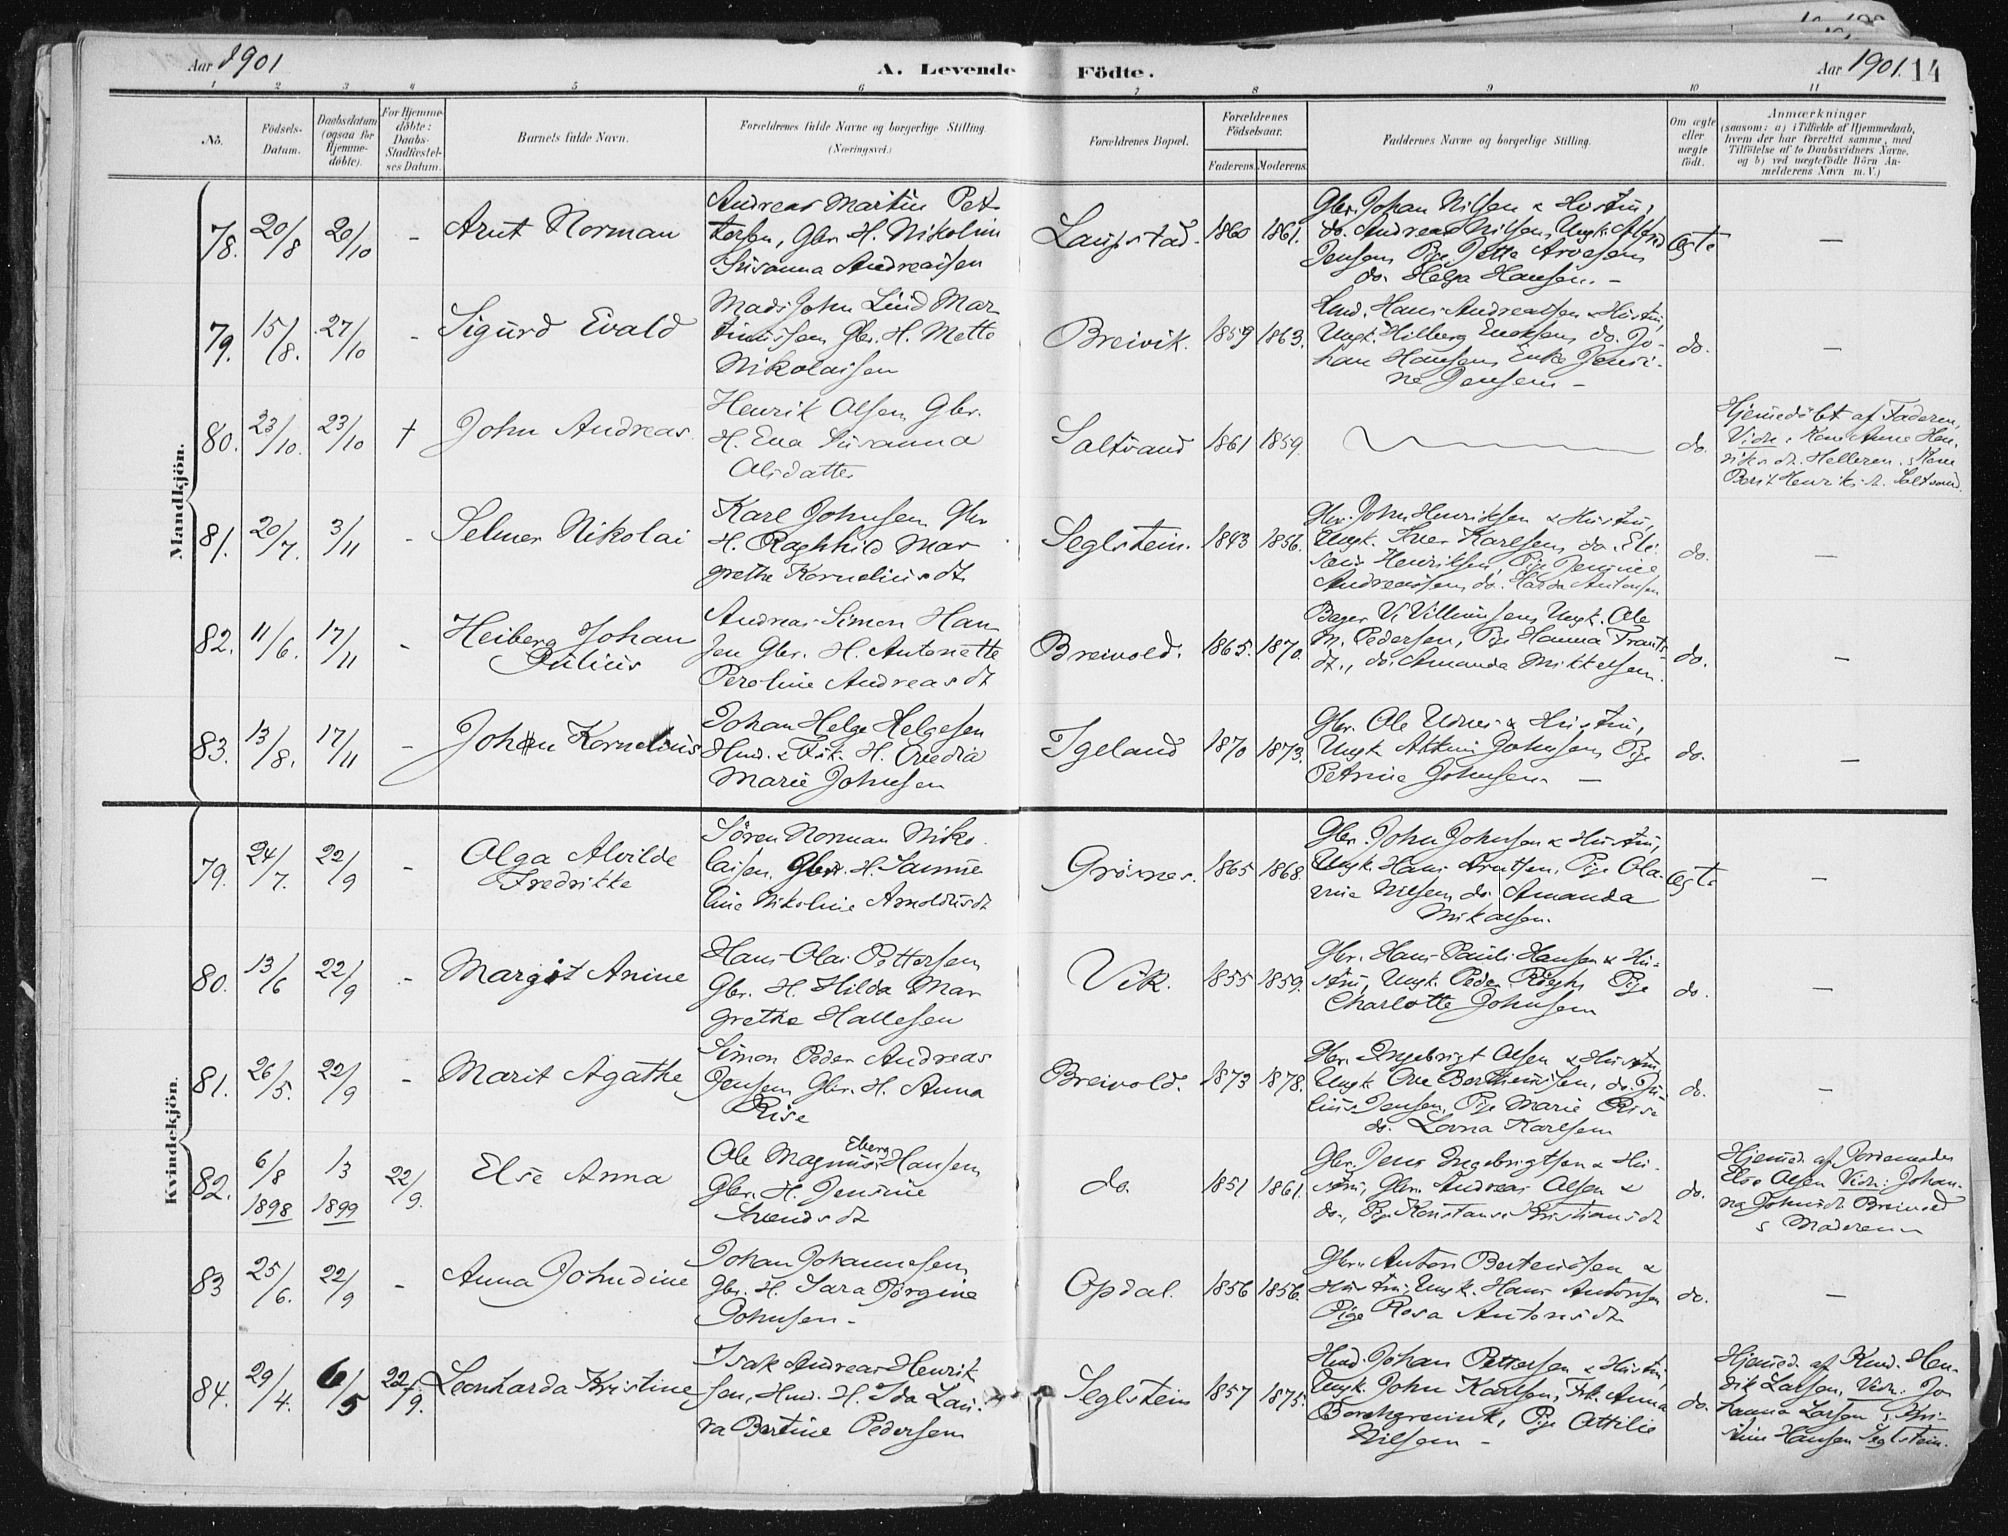 Aar 1901
A. Levende Födte.
Aar 1901. 14
1 2 3 4 5 6 7 8 9 10 11
No.
Födsels-
Datum.
Daabsdatum
(ogsaa för
Hjemme-
döbte).
For Hjemme-
döbte:
Daabs-
Stadfæstel-
ses Datum.
Barnets fulde Navn.
Forældrenes fulde Navne og borgerlige Stilling
(Næringsvei.)
Forældrenes Bopæl.
Forældrenes
Födselsaar.
Faderens. Moderens.
Faddernes Navne og borgerlige Stilling.
Om ægte
eller
uægte
födt.
Anmærkninger
(saasom: a) i Tilfælde af Hjemmedaab,
hvem der har forrettet samme, med
Tilföielse af to Daabsvidners Navne,
og b) ved uægtefödte Börn An-
melderens Navn m. V.)
Mandkjön.
78. 20/8 20/10 - Arnt Norman
Andreas Martin Pet-
tersen, Gbr. H. Nikoline
Susanna Andreassen
Laupstad. 1860 1861.
Gbr. Johan Nilsen & Hustru,
do. Andreas Nilsen, Ungk. Alfred
Jensen, Pige Jette
do. Helga Hansen. -
ægte —
79. 15/8. 27/10 - Sigurd Evald
Mads John Lind Mar-
tinussen Gbr. H. Mette
Nikolaisen
Breivik. 1859 1863.
Hmd. Hans Andreassen & Hustru,
Ungk. Hilberg Enoksen, do. Jo-
han Hansen, Enke Jensi-
ne Jensen -
do. —
80. 23/10. 23/10 † John Andreas
Henrik Olsen, Gbr.
H. Eva Susanna
Olsdatter
Saltvand 1861 1859.
do.
Hjemmedöbt af Faderen,
Vidn: Kone Anne Hen-
riksdt. Helleren, & Kone
Berit Henriksdt. Saltvand.
81. 20/7. 3/11 - Selmer Nikolai
Karl Johnsen Gbr
H. Raghhild Mar
grethe Korneliusdt.
Seglstein. 1843 1856.
Gbr. John Henriksen & Hustru,
Ungk. Iver Karlsen, do. Eli-
seus Henriksen, Pige Jensine
Andreassen, do. Harda Antonsen
do. —
82. 11/6. 17/11 - Heiberg Johan
Julius
Andreas Simon Han
sen Gbr. H. Antonette
Peroline Andreasdt
Breivold. 1865. 1870.
Bager V. Villumsen, Ungk. Ole
M. Pedersen, Pige Hanna
dt., do. Amanda Mikkelsen.
do. —
83. 13/8. 17/11 - Johan Kornelius
Johan Helge Helgesen
Hmd. & Fisk. H. Ovedia
Marie Johnsen
Igeland 1870 1873.
Gbr. Ole & Hustru,
Ungk. Johnsen, Pige
Petrine Johnsen. —
do. —
Kvindekjön.
79. 24/7. 22/9 - Olga Alvilde
Fredrikke
Sören Norman Niko
laisen, Gbr. H. Sanne
line Nikoline Arnoldusdt
Grösnes. 1865 1868.
Gbr. John Johnsen & Hustru,
Ungk. Hans Arntsen, Pige Ola-
vine Nilsen, do. Amanda
Mikalsen.
ægte —
80. 13/6 22/9 - Margit Anine
Hans Olai Pettersen
Gbr. H. Hilda Mar
grethe Hallesen
Vik. 1855 1859.
Gbr. Hans Pauli Hansen & Hu-
stru, Ungk. Peder Pige
Charlotte Johnsen
do. —
81. 26/5. 22/9 - Marit Agathe
Simon Peder Andreas
Jensen, Gbr. H. Anna
Rise
Breivold. 1873 1878.
Gbr. Ingebrigt Olsen & Hustru,
Ungk Ove Bertheussen, do. Ju-
lius Jensen, Pige Marie Rise
do. Lovna Karlsen
do. —
82. 6/8 1898 1/3 1899 22/9. Else Anna
Ole Magnus Eberg Hansen,
Gbr. H. Jensine
Svendsdt
do. 1851 1861.
Gbr. Jens Engebrigtsen & Hu-
stru, Gbr. Andreas Olsen &
do., Pige Konstanse Kristiansdt
do.
Hjemmed. af Jordemoder
Else Olsen Vidn: Johan-
na Johnsdt. Breivold
& Moderen
83 25/6. 22/9 - Anna Johndine
Johan Johannesen,
Gbr. H. Sara Jörgine
Johnsen -
Opdal. 1856 1856.
Gbr. Anton Berteussen &
Hustru, Ungk. Hans Antonsen
Pige Rosa Antonsdt
do. —
84. 29/4. 6/5 22/9. Leonharda Kristine
Isak Andreas Henrik
sen, Hmd. H. Ida Lau-
ra Bertine Pedersen
Seglstein 1857 1875.
Hmd. Johan Pettersen & Hustru,
Ungk. John Karlsen, Frk. Anna
Borchgrevink, Pige Ottilie
Nilsen -
do.
Hjemmed. af Kmd. Hen-
rik Larsen, Vidn. Jo
hanna Larsen & Kri-
stine Hansen Seglstein.